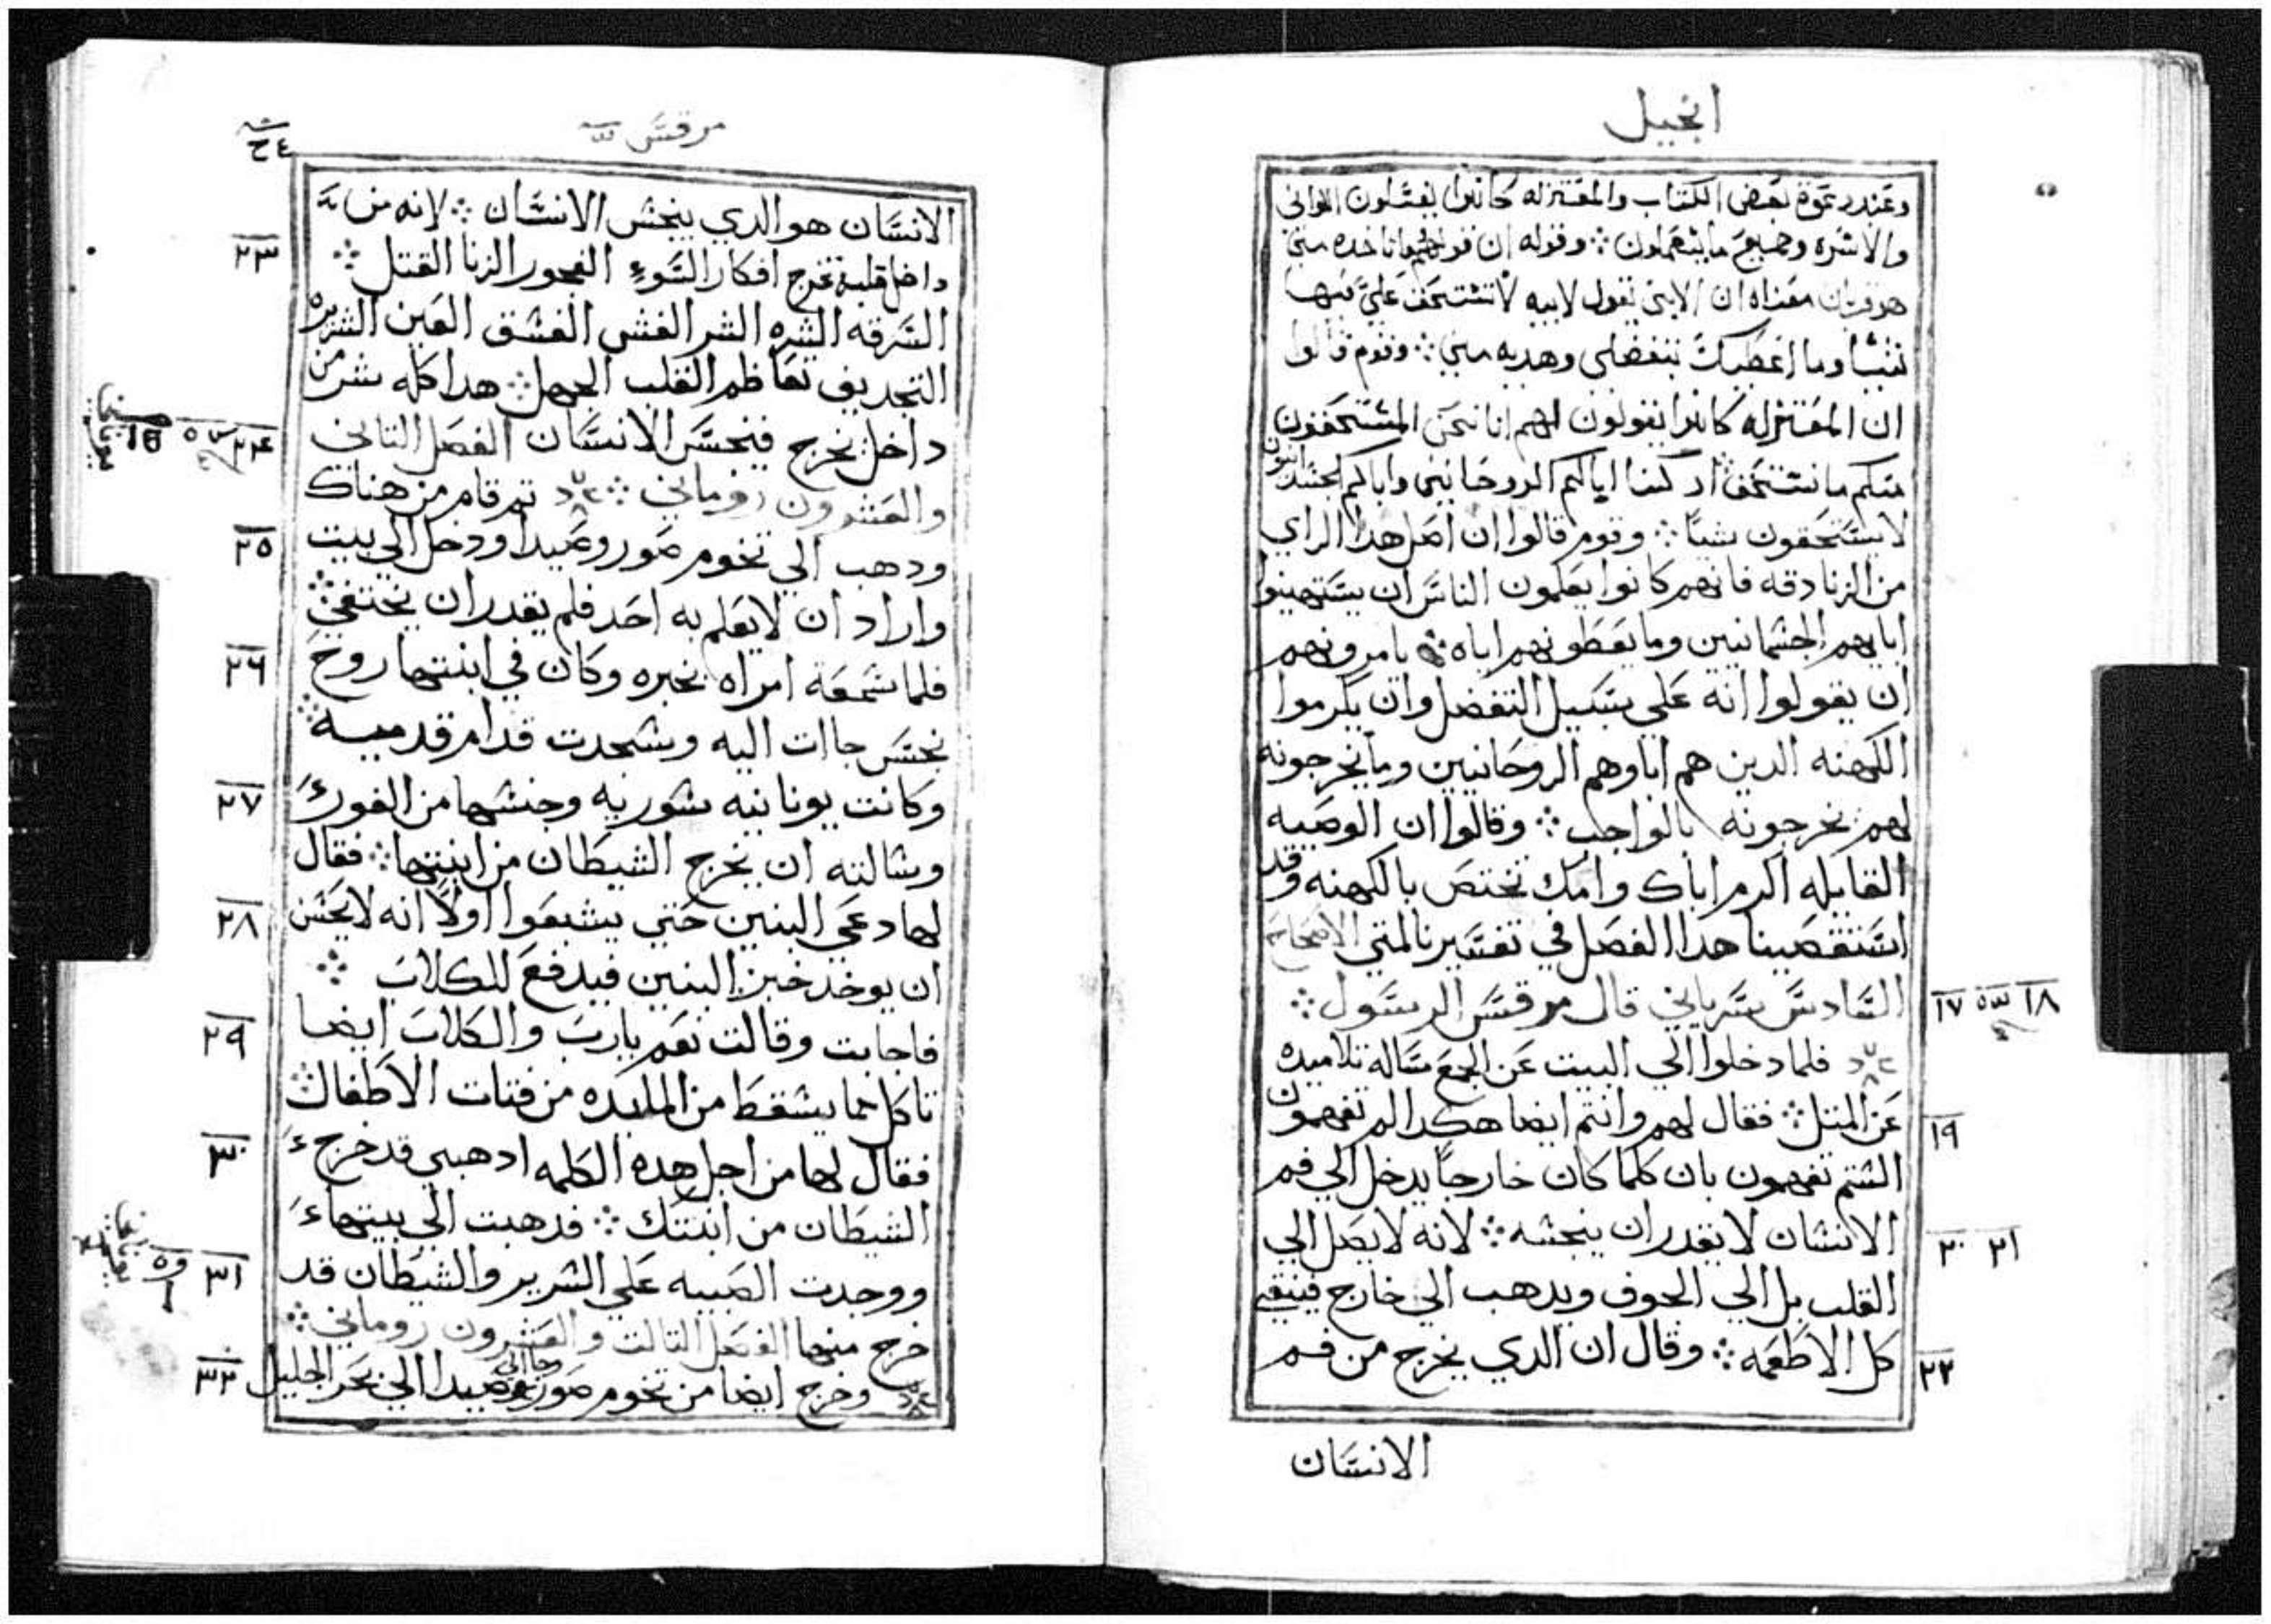 انجيل
وعند دعوة بعض الكتاب والمعتزله كانوا يغسلون الاواني
والاسره وجميع ما يستعملون ؞ وقوله ان
هو قربان معناه ان الابن يقول لابيه لا تستحق علي
شيا وما اعطيك بتفضلي وهديه مني ؞ وقوم قالوا
ان المعتزله كانوا يقولون لهم انا نحن المستحقون
منكم ما نستحق اد كنا اباكم الروحانيين واباكم
لا يستحقون شيًا ؞ وقوم قالوا ان اصل هدا الراي
من الزنادقه فانهم كانوا يعلمون الناس ان يستهينوا
ابايهم الجسمانيين وما يعطونهم اياه يامرونهم
ان يقولوا انه علي سبيل التفضل وان يكرموا
الكهنه الدين هم اباوهم الروحانيين وما يخرجونه
لهم يخرجونه بالواجب ؞ وقالوا ان الوصيه
القايله اكرم اباك وامك تختص بالكهنه وقد
استقصينا هدا الفصل في تفسيرنا لمتي الاصحاح
السادس سرياني قال مرقس الرسول ؞
١٨ ١٧
فلما دخلوا الي البيت عن الجمع ساله تلاميده
عن المتل ؞ فقال لهم وانتم ايضا هكدا لم تفهمون
١٩
الستم تفهمون بان كلما كان خارجًا يدخل الي فم
الانسان لا يقدر ان ينجسه ؞ لانه لا يصل الي
٢١ ٢٠
القلب بل الي الجوف ويدهب الي خارج فينقي
كل الاطعمه ؞ وقال ان الدي يخرج من فم
٢٢
الانسان
مرقس
الانسان هو الدي ينجس الانسان ؞ لانه من
داخل قلبه تخرج افكار السوء الفجور الزنا القتل ؞
٢٣
السرقه الشره الشر الغش الفسق العين الشريره
التجديف تعاظم القلب الجهل ؞ هدا كله شر من
داخل يخرج فينجس الانسان الفصل التاني
٢٤
والعشرون روماني ؞ تم قام من هناك
ودهب الي تخوم صور وصيدا ودخل الي بيت
٢٥
واراد ان لا يعلم به احد فلم يقدر ان يختفي ؞
فلما سمعة امراه بخبره وكان في ابنتها روح
٢٦
نجس جاات اليه وسجدت قدام قدميه ؞
وكانت يونانيه سوريه وجنسها من الفور
٢٧
وسالته ان يخرج الشيطان من ابنتها ؞ فقال
لها دعي البنين حتي يشبعوا اولًا انه لا يحسن
٢٨
ان يوخد خبز البنين فيدفع للكلاب ؞
فاجابت وقالت نعم يارب والكلاب ايضا
٢٩
تاكل مما يسقط من المايده من فتات الاطفال ؞
فقال لها من اجل هده الكلمه ادهبي قد خرج
٣٠
الشيطان من ابنتك ؞ فدهبت الي بيتها
ووجدت الصبيه علي السرير والشيطان قد
٣١
خرج منها الفصل التالت والعشرون روماني ؞
وخرج ايضا من تخوم صور وصيدا وجا الي بحر الجليل
٣٢